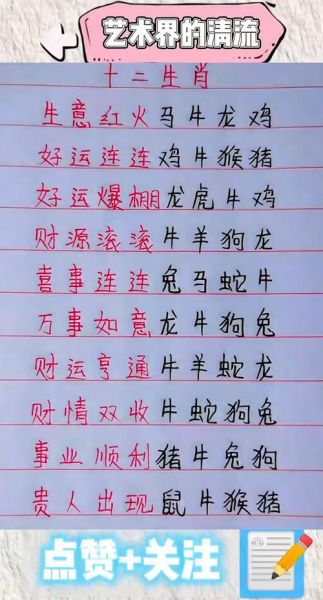 艺术界的清流
十二生肖
生意红火马牛龙鸡
好运连连鸡牛猴猪
好运爆棚龙虎牛鸡
财源滚滚牛羊狗龙
喜事连连兔马蛇牛
万事如意龙牛狗兔
财运亨通牛羊蛇龙
财情双收牛蛇狗兔
事业顺利猪牛兔狗
贵人出现鼠牛猴猪
点赞+关注